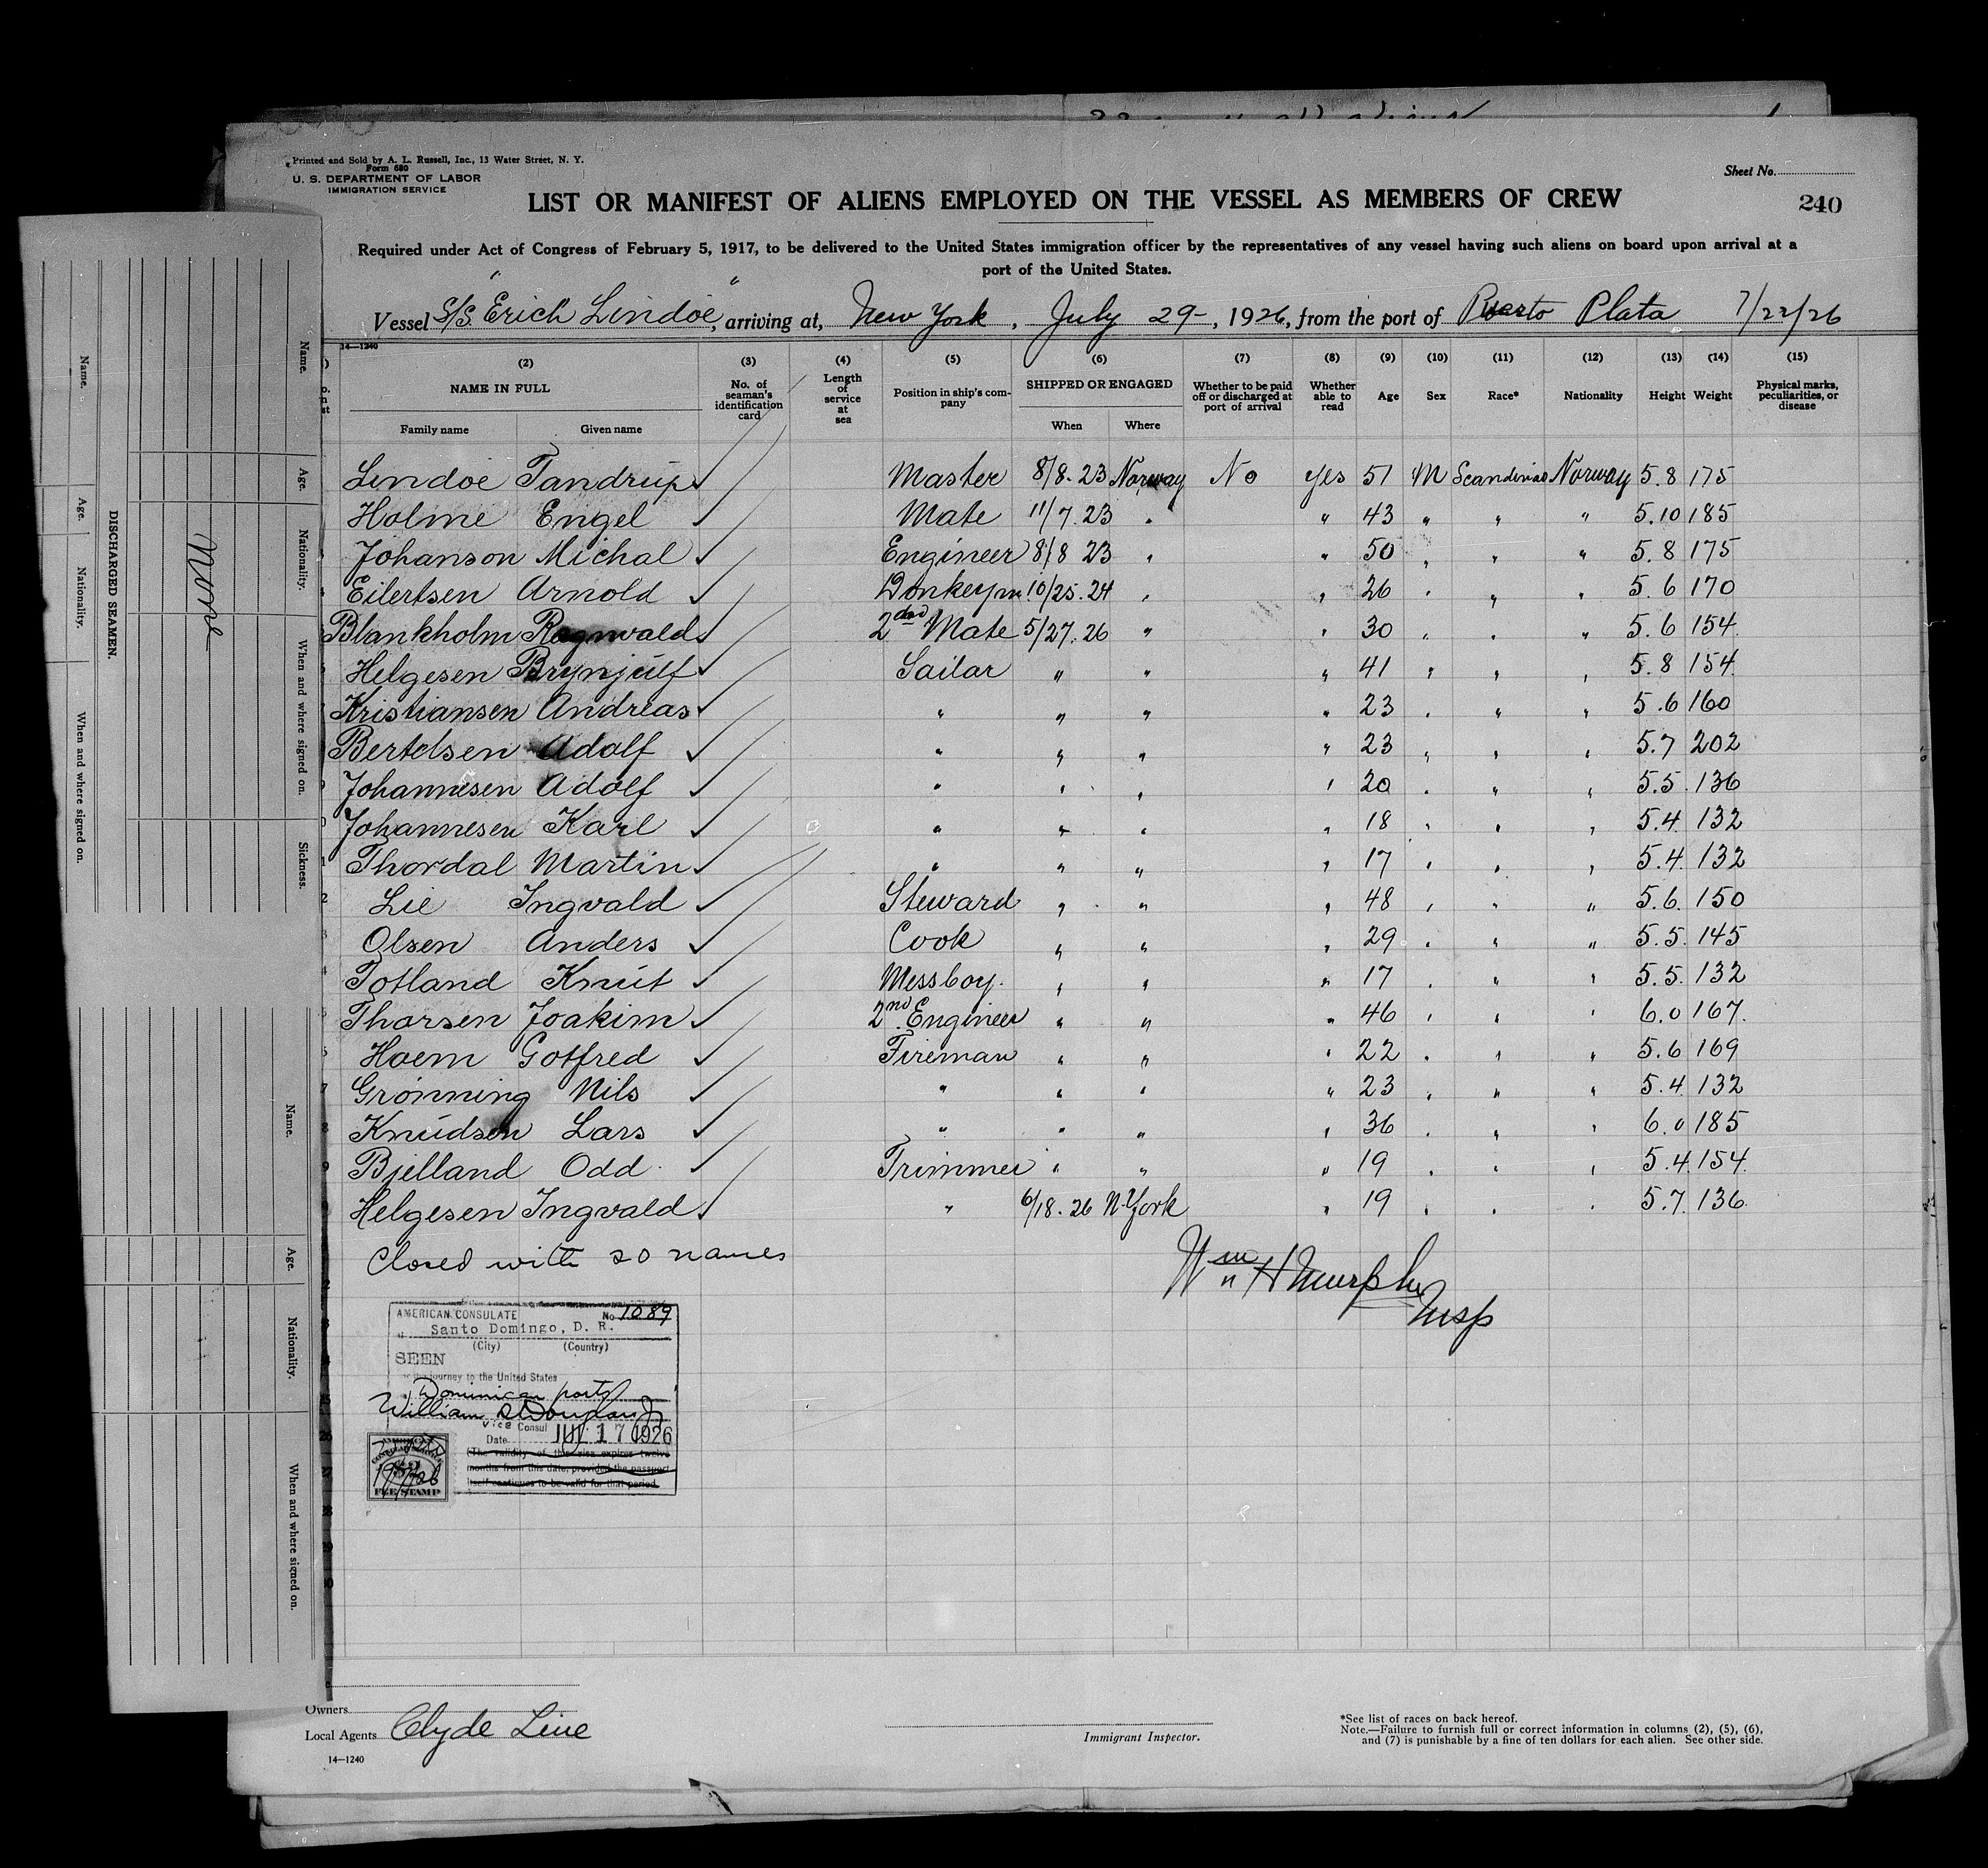 Printed and Sold by A. L. Russell, Inc., 13 Water Street, N. Y.
Form 680
U. S. DEPARTMENT OF LABOR
IMMIGRATION SERVICE
Sheet No.
LIST OR MANIFEST OF ALIENS EMPLOYED ON THE VESSEL AS MEMBERS OF CREW
240
Required under Act of Congress of February 5, 1917, to be delivered to the United States immigration officer by the representatives of any vessel having such aliens on board upon arrival at a
port of the United States.
Vessel S/S. "Erich Lindoe", arriving at, New York, July 29-, 1926, from the port of Puerto Plata 7/22/26
14—1240
(2) (3) (4) (5) (6) (7) (8) (9) (10) (11) (12) (13) (14) (15)
NAME IN FULL
Family name Given name
No. of seaman's identification card
Length of service at sea
Position in ship's company
SHIPPED OR ENGAGED
When Where
Whether to be paid off or discharged at port of arrival
Whether able to read
Age
Sex
Race*
Nationality
Height
Weight
Physical marks, peculiarities, or disease
Lindoe Tandrup Master 8/8. 23 Norway No yes 51 M Scandinav Norway 5.8 175
Holme Engel Mate 11/7. 23 " " 43 " " " 5.10 185
Johanson Michal Engineer 8/8 23 " " 50 " " " 5.8 175
Eilertsen Arnold Donkeym 10/25. 24 " " 26 " " " 5.6 170
Blankholm Ragnvald 2nd Mate 5/27. 26 " " 30 " " " 5.6 154
Helgesen Brynjulf Sailor " " " 41 " " " 5.8 154
Kristiansen Andreas " " " " 23 " " " 5.6 160
Bertelsen Adolf " " " " 23 " " " 5.7 202
Johannesen Adolf " " " " 20 " " " 5.5. 136
Johannesen Karl " " " " 18 " " " 5.4. 132
Thordal Martin " " " " 17 " " " 5.4. 132
Lie Ingvald Steward " " " 48 " " " 5.6. 150
Olsen Anders Cook " " " 29 " " " 5.5. 145
Totland Knut Messboy. " " " 17 " " " 5.5. 132
Thorsen Joakim 2nd Engineer " " " 46 " " " 6.0 167.
Hoem Gotfred Fireman " " " 22 " " " 5.6 169
Grönning Nils " " " " 23 " " " 5.4 132
Knudsen Lars " " " " 36 " " " 6.0 185
Bjelland Odd Trimmer " " " 19 " " " 5.4. 154
Helgesen Ingvald " 6/18. 26 N. York " 19 " " " 5.7. 136
Closed with 20 names
Wm H Murphy
Insp
AMERICAN CONSULATE No 1089
at Santo Domingo, D. R.
(City) (Country)
SEEN
journey to the United States
Dominican ports
William
Vice Consul
Date JUL 17 1926
(The validity of this visa expires twelve
months from this date, provided the passport
itself continues to be valid for that period.
FEE STAMP
Owners
Local Agents Clyde Line
14—1240
Immigrant Inspector.
*See list of races on back hereof.
Note.—Failure to furnish full or correct information in columns (2), (5), (6),
and (7) is punishable by a fine of ten dollars for each alien. See other side.
DISCHARGED SEAMEN.
Name. Age. Nationality. When and where signed on.
Name. Age. Nationality. When and where signed on. Sickness.
None
Name. Age. Nationality. When and where signed on.